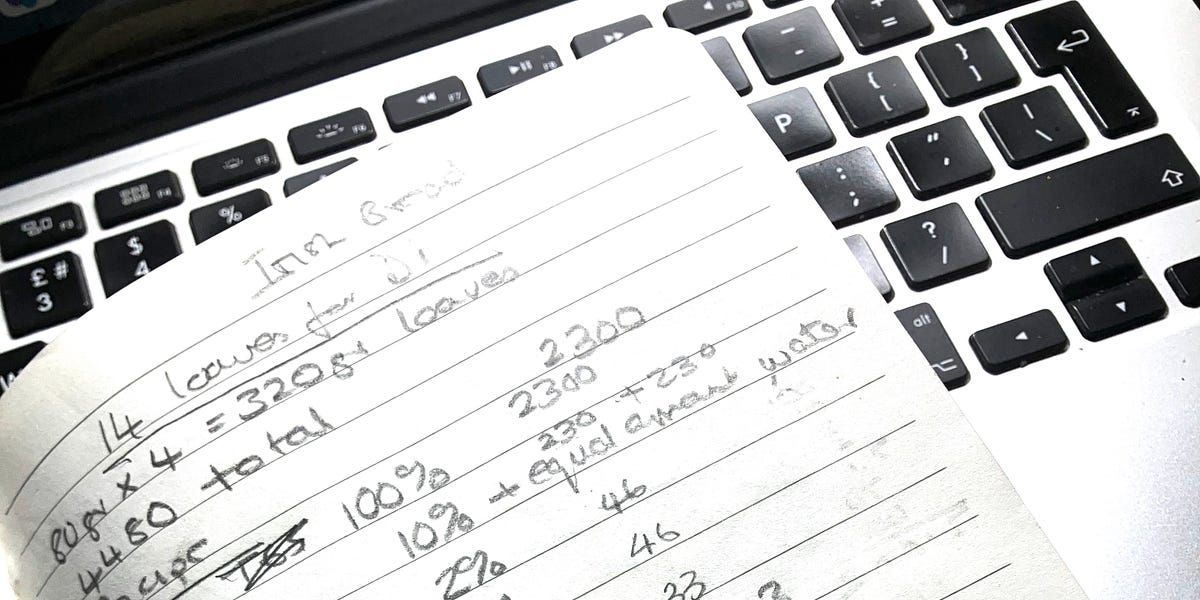 Irish Bread
14 loaves for Di
80gr x 4 = 320gr loaves
4480 total
2300
100% 2300
10% + equal amount water 230 + 230
2% 46
46
33
F3
F4
F5
F6
F7
F8
F10
£ #
3
$
4
%
P
-
+
=
{
[
}
]
:
;
"
'
|
\
?
/
alt